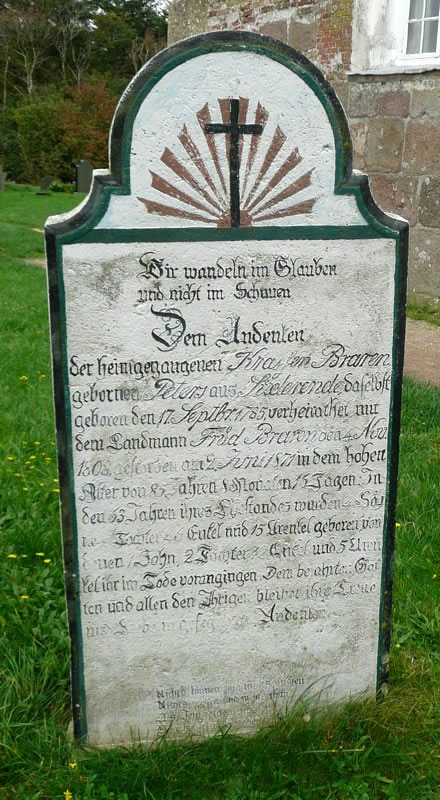 Wir wandeln im Glauben
und nicht im Schauen
Dem Andenken
der heimgegangenen Krassen Braren
gebornen Peters aus Süderende daselbst
geboren den 17. Septbr 1785 verheirathet mit
dem Landmann Früd Braren den 4 Nov.
1808 gestorben am 2 Juni 1871 in dem hohen
Alter von 85 Jahren 8 Monaten 15 Tagen: In
den 63 Jahren ihres Ehstandes wurden 4 Söh
ne Töchter 26 Enkel und 15 Urenkel geboren von
denen 1 Sohn, 2 Töchter Enkel und 5 Uren
kel ihr im Tode vorangingen. Dem bejahrten Gat
ten und allen den Ihrigen bleibet ihre Treue
Andenken